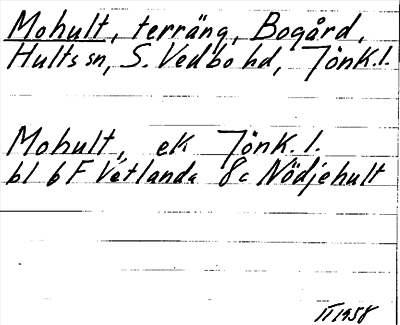 Mohult, terräng, Bogård,
Hults sn, S. Vedbo hd, Jönk. l.
Mohult, ek Jönk. l.
bl 6 F Vetlanda 8c Nödjehult
II 1958